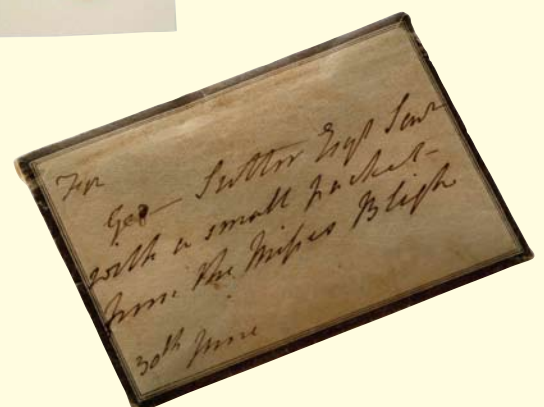 For
Geo Suttor Esqr Senr
with a small packet
from the Misses Bligh
30th June